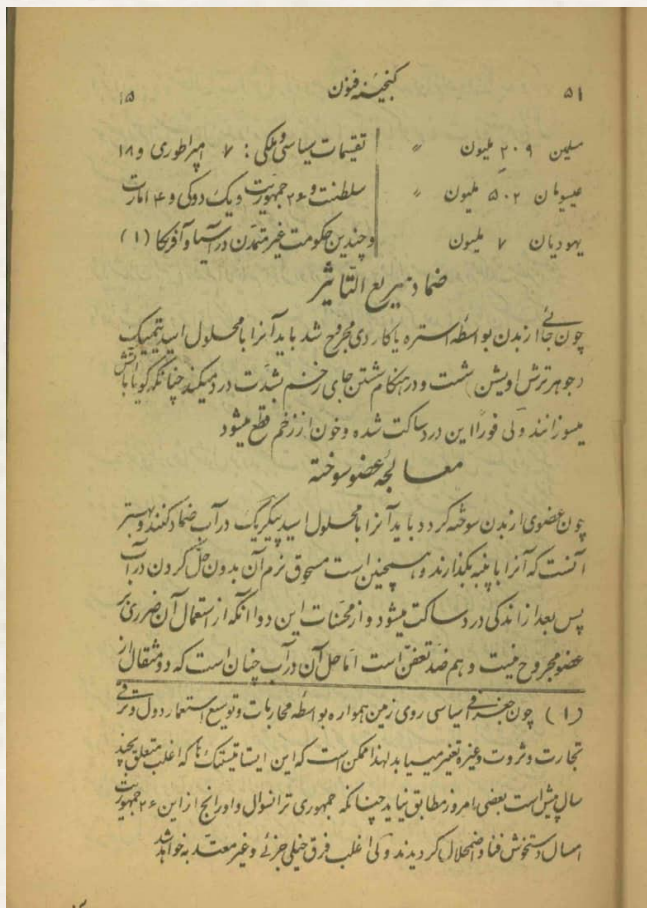 ۵۱ گنجینه فنون ۱۵
مسلمین ۲۰۹ ملیون " تقسیمات سیاسی و ملکی : ۷ امپراطوری و ۱۸
عیسویان ۵۰۲ ملیون " سلطنت و ۲۶ جمهوریت و یک دوکی و ۴ امارت
یهودیان ۷ ملیون و چندین حکومت غیر متمدن در آسیا و آفریکا (۱)
ضماد سریع التأثیر
چون جائی از بدن بواسطه استره یا کاردی مجروح شد باید آنرا با محلول اسید تیمیک
و جوهر ترش اویشن شست و در هنگام شستن جای زخم بشدت درد میکند چنانکه گویا با آتش
میسوزانند ولی فوراً این درد ساکت شده و خون از زخم قطع میشود
معالجه عضو سوخته
چون عضوی از بدن سوخته گردد باید آنرا با محلول اسید پیکریک در آب ضماد کنند و بهتر
آنست که آنرا با پنبه بگذارند و همچنین است مسحوق نرم آن بدون حل کردن در آب
پس بعد از اندکی درد ساکت میشود و از محسنات این دوا آنکه از استعمال آن ضرری بر
عضو مجروح نیست و هم ضد تعفن است اما حل آن در آب چنان است که دو مثقال از
(۱) چون جغرافی سیاسی روی زمین همواره بواسطه محاربات و توسیع استعمار دول و ترقی
تجارت و ثروت و غیره تغییر میابد لهذا ممکن است که این ایستاتیستیک ها که اغلب متعلق بچند
سال پیش است بعضی امروز مطابق نیاید چنانکه جمهوری ترانسوال و اورانج از این ۲۶ جمهوریت
امسال دستخوش فنا و اضمحلال گردیدند ولی اغلب فرق خیلی جزئی و غیر معتد به خواهد شد